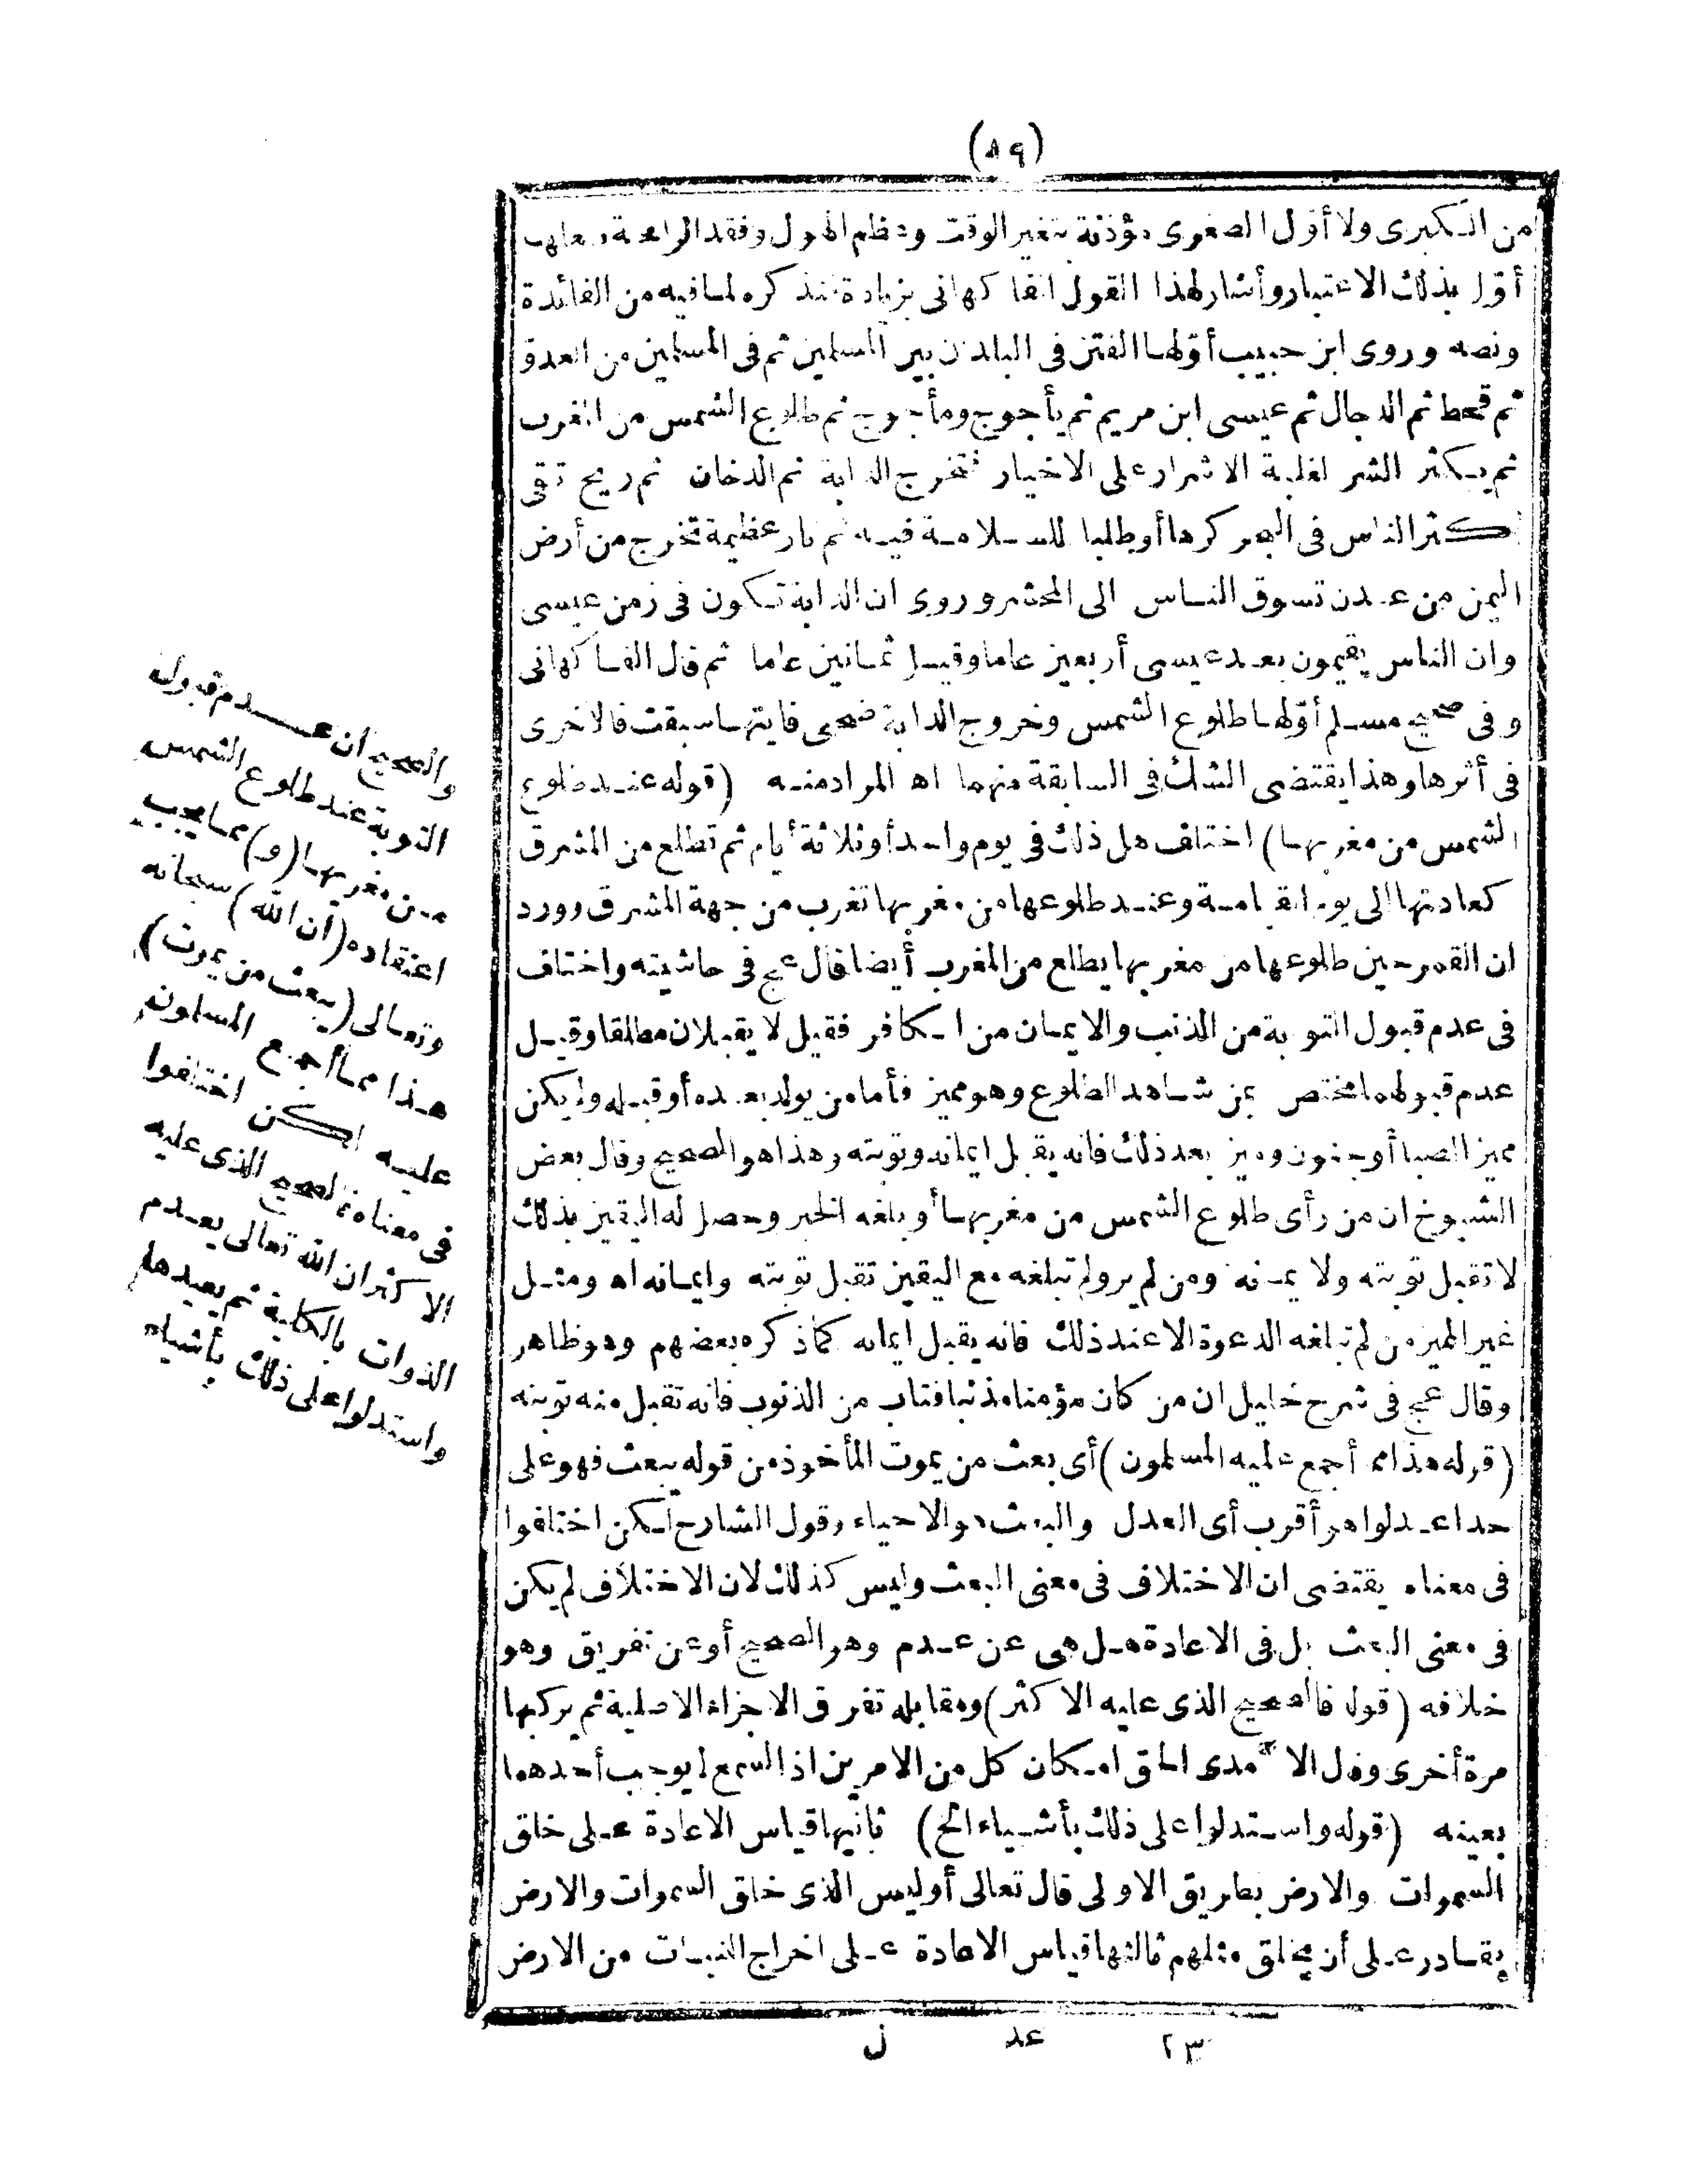 (٨٩)
من الكبرى ولا أول الصغرى مؤذنة بتغير الوقت وعظم الهول وفقد الراحة
أول بذلك الاعتبار وأشار لهذا القول الفاكهانى بزيادة نذكره لما فيه من الفائدة
ونصه وروى ابن حبيب أولها الفتن فى البلدان بين المسلمين ثم فى المسلمين من العدو
ثم قحط ثم الدجال ثم عيسى ابن مريم ثم يأجوج ومأجوج ثم طلوع الشمس من المغرب
ثم يكثر الشر لغلبة الاشرار على الاخيار فتخرج الدابة ثم الدخان ثم ريح تلقى
أكثر الناس فى البحر كرها أو طلبا للسلامة فيه ثم نار عظيمة تخرج من أرض
اليمن من عدن تسوق الناس الى المحشر وروى ان الدابة تكون فى زمن عيسى
وان الناس يقيمون بعد عيسى أربعين عاما وقيل ثمانين عاما ثم قال الفاكهانى
وفى صحيح مسلم أولها طلوع الشمس وخروج الدابة ضحى فايتها سبقت فالاخرى
فى أثرها وهذا يقتضى الشك فى السابقة منهما اه المراد منه (قوله عند طلوع
الشمس من مغربها) اختلف هل ذلك فى يوم واحد أو ثلاثة أيام ثم تطلع من المشرق
كعادتها الى يوم القيامة وعند طلوعها من مغربها تغرب من جهة المشرق وورد
ان القمر حين طلوعها من مغربها يطلع من المغرب أيضا قال عج فى حاشيته واختلف
فى عدم قبول التوبة من المذنب والايمان من الكافر فقيل لا يقبلان مطلقا وقيل
عدم قبولهما مختص بمن شاهد الطلوع وهو مميز فأما من يولد بعده أو قبله ولم يكن
مميز الصبا أو جنون وميز بعد ذلك فانه يقبل ايمانه وتوبته وهذا هو الصحيح وقال بعض
الشيوخ ان من رأى طلوع الشمس من مغربها أو بلغه الخبر وحصل له اليقين بذلك
لا تقبل توبته ولا ايمانه ومن لم ير ولم تبلغه مع اليقين تقبل توبته وايمانه اه ومثل
غير المميز من لم تبلغه الدعوة الا عند ذلك فانه يقبل ايمانه كما ذكره بعضهم وهو ظاهر
وقال عج فى شرح خليل ان من كان مؤمنا مذنبا فتاب من الذنوب فانه تقبل منه توبته
(قوله هذا مما أجمع عليه المسلمون) أى بعث من يموت المأخوذ من قوله يبعث فهو على
حد اعدلوا هو أقرب أى العدل والبعث هو الاحياء وقول الشارح لكن اختلفوا
فى معناه يقتضى ان الاختلاف فى معنى البعث وليس كذلك لان الاختلاف لم يكن
فى معنى البعث بل فى الاعادة هل هى عن عدم وهو الصحيح أو عن تفريق وهو
خلافه (قوله فالصحيح الذى عليه الاكثر) ومقابله تفرق الاجزاء الاصلية ثم يركبها
مرة أخرى وقال الآمدى الحق امكان كل من الامرين اذ السمع لم يوجب أحدهما
بعينه (قوله واستدلوا على ذلك بأشياء الخ) ثانيها قياس الاعادة على خلق
السموات والارض بطريق الاولى قال تعالى أوليس الذى خلق السموات والارض
بقادر على أن يخلق مثلهم ثالثها قياس الاعادة على اخراج النبات من الارض
والصحيح ان عدم قبول
التوبة عند طلوع الشمس
من مغربها (و) مما يجب
اعتقاده (أن الله) سبحانه
وتعالى (يبعث من يموت)
هذا مما أجمع المسلمون
عليه لكن اختلفوا
فى معناه فالصحيح الذى عليه
الاكثر ان الله تعالى يعدم
الذوات بالكلية ثم يعيدها
واستدلوا على ذلك بأشياء
٢٣ عد ل